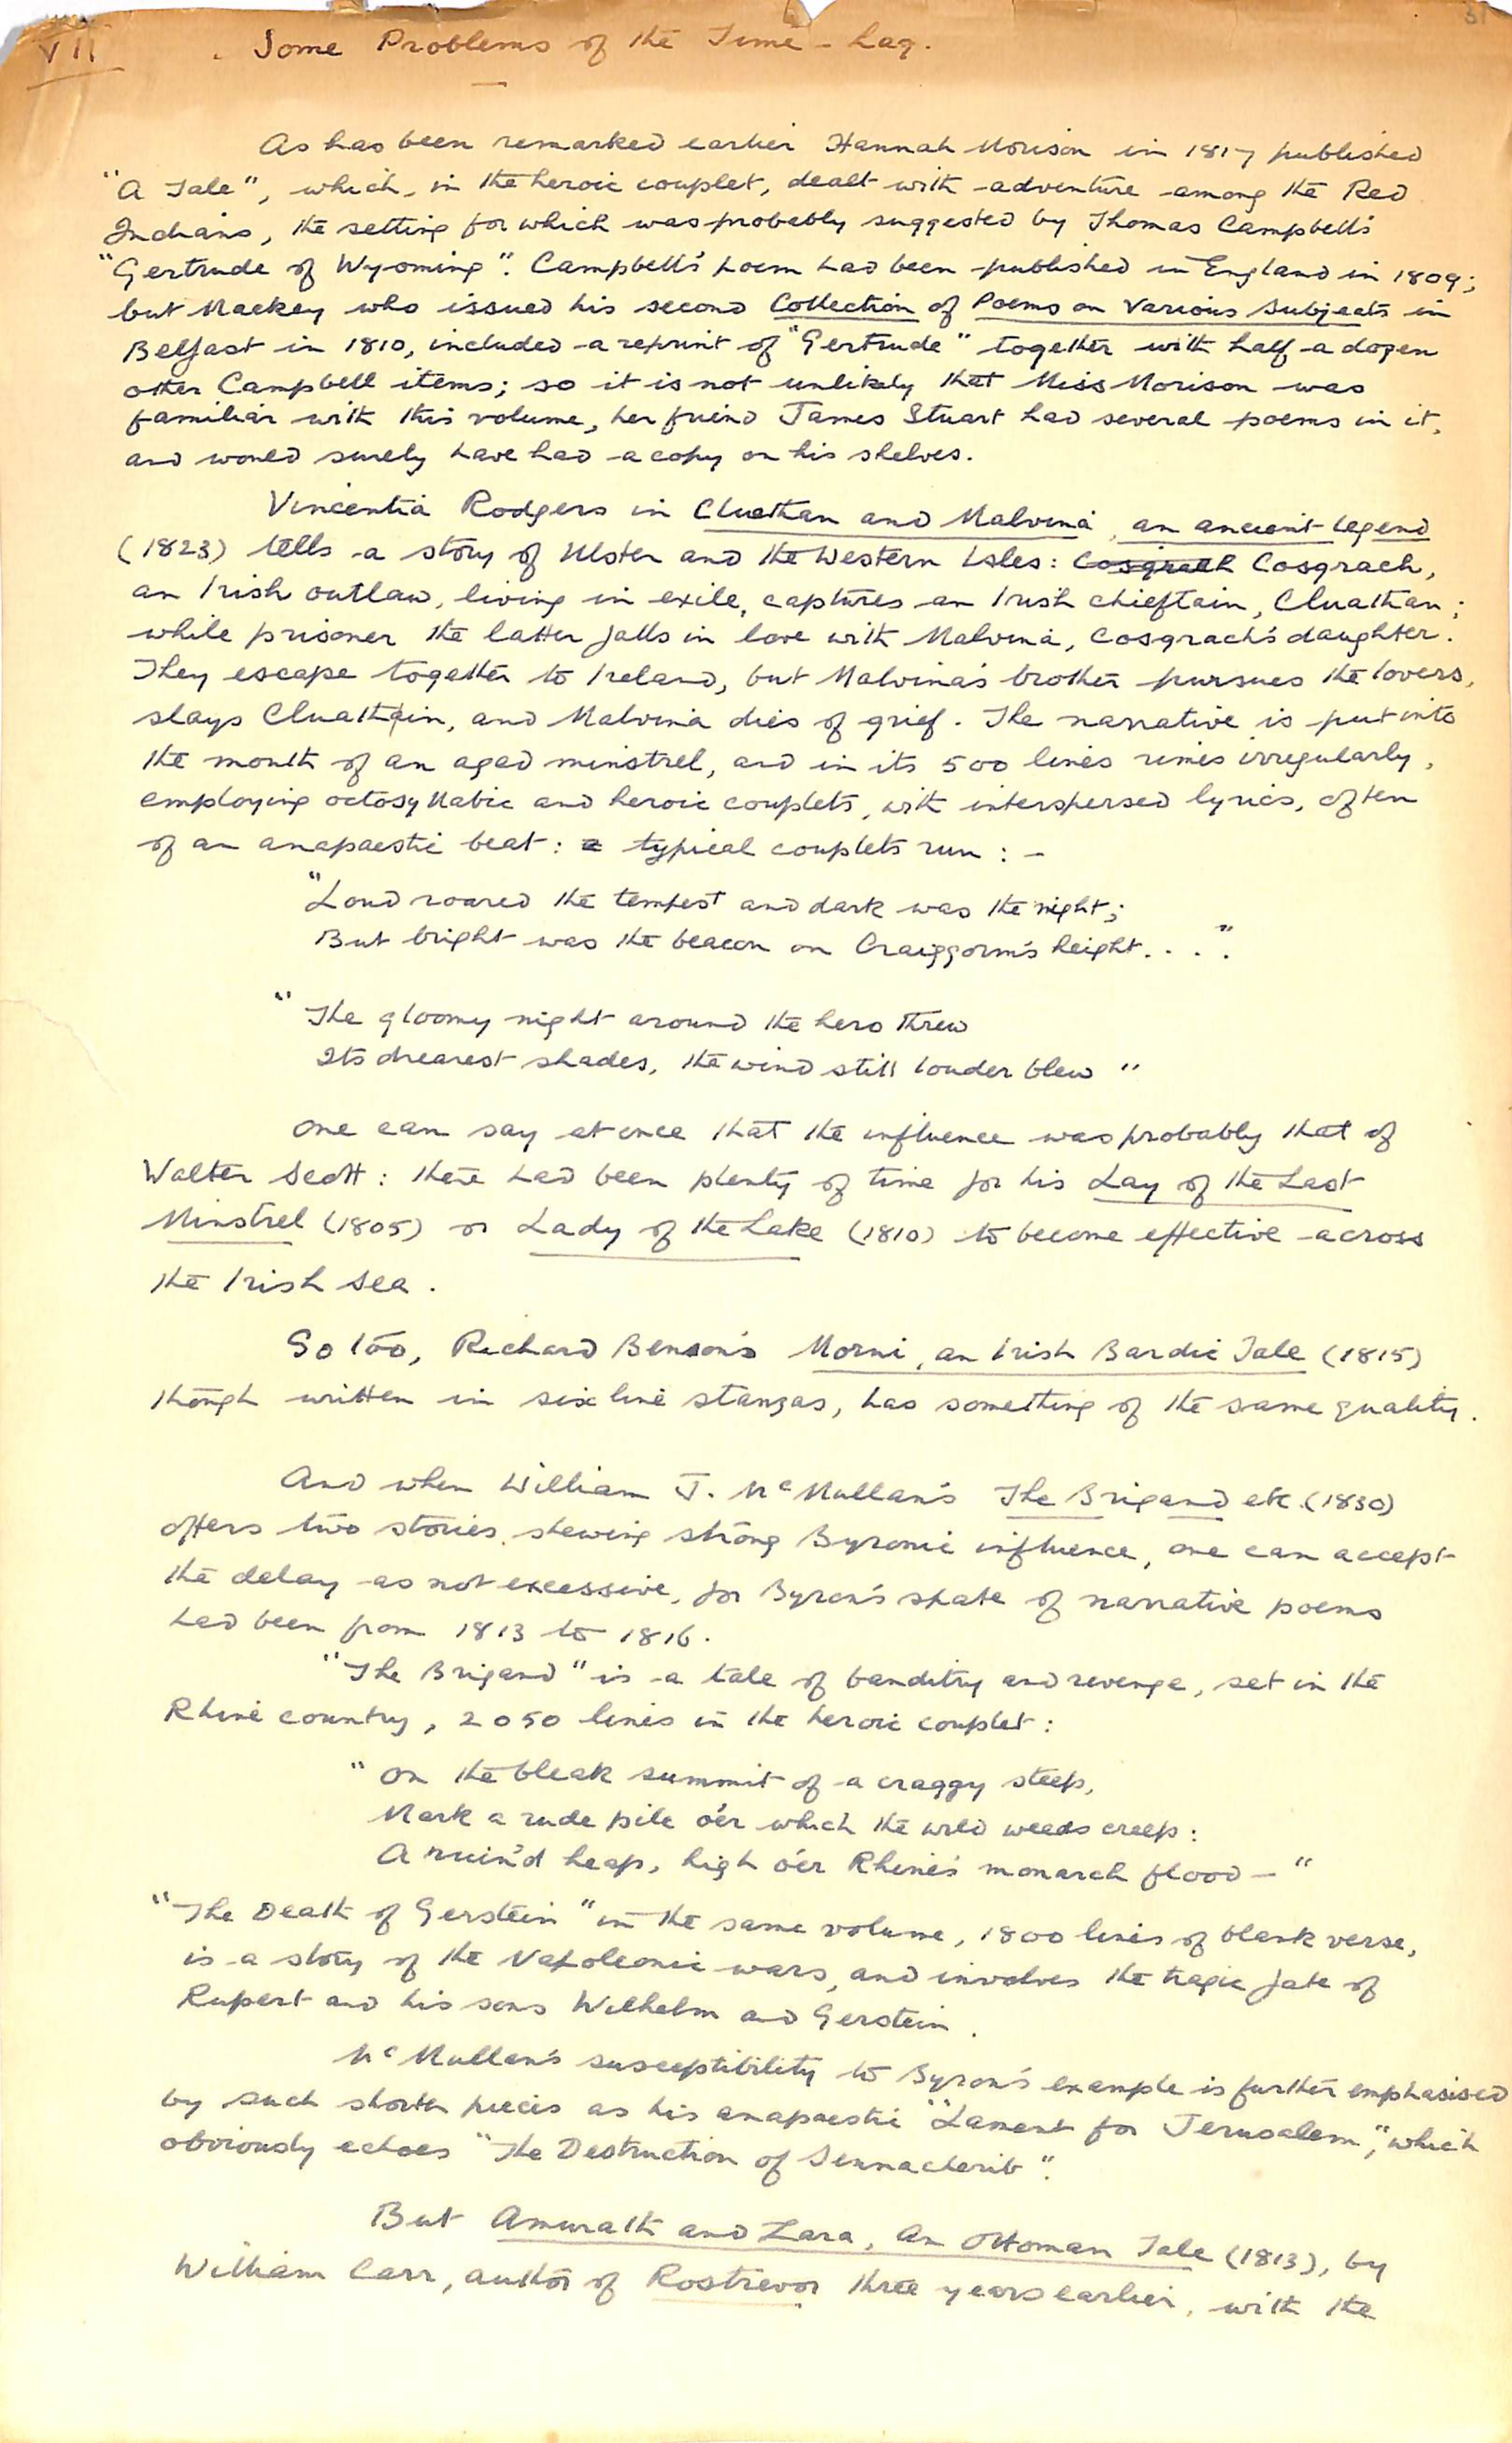 VII . Some Problems of the Time-Lag.
As has been remarked earlier Hannah Morison in 1817 published
"A Tale", which, in the heroic couplet, dealt with adventure among the Red
Indians, the setting for which was probably suggested by Thomas Campbell's
"Gertrude of Wyoming". Campbell's poem had been published in England in 1809;
but Mackey who issued his second Collection of Poems on Various Subjects in
Belfast in 1810, included a reprint of "Gertrude" together with half a dozen
other Campbell items; so it is not unlikely that Miss Morison was
familiar with this volume, her friend James Stuart had several poems in it,
and would surely have had a copy on his shelves.
Vincentia Rodgers in Cluathan and Malvina, an ancient legend
(1823) tells a story of Ulster and the Western Isles: Cosgrach Cosgrach,
an Irish outlaw, living in exile, captures an Irish chieftain, Cluathan;
while prisoner the latter falls in love with Malvina, Cosgrach's daughter.
They escape together to Ireland, but Malvina's brother pursues the lovers,
slays Cluathain, and Malvina dies of grief. The narrative is put into
the mouth of an aged minstrel, and in its 500 lines rimes irregularly,
employing octosyllabic and heroic couplets, with interspersed lyrics, often
of an anapaestic beat: a typical couplets run : -
"Loud roared the tempest and dark was the night;
But bright was the beacon on Craiggorm's height. . . ."
"The gloomy night around the hero threw
Its drearest shades, the wind still louder blew"
One can say at once that the influence was probably that of
Walter Scott: there had been plenty of time for his Lay of the Last
Minstrel (1805) or Lady of the Lake (1810) to become effective across
the Irish Sea.
So too, Richard Benson's Morni, an Irish Bardic Tale (1815)
though written in six line stanzas, has something of the same quality.
And when William J. McMullan's The Brigand etc. (1830)
offers two stories shewing strong Byronic influence, one can accept
the delay as not excessive, for Byron's spate of narrative poems
had been from 1813 to 1816.
"The Brigand" is a tale of banditry and revenge, set in the
Rhine country, 2050 lines in the heroic couplet:
"On the bleak summit of a craggy steep,
Mark a rude pile o'er which the wild weeds creep:
A ruin'd heap, high o'er Rhine's monarch flood—"
"The Death of Gerstein" in the same volume, 1800 lines of blank verse,
is a story of the Napoleonic wars, and involves the tragic fate of
Rupert and his sons Wilhelm and Gerstein.
McMullan's susceptibility to Byron's example is further emphasised
by such shorter pieces as his anapaestic "Lament for Jerusalem", which
obviously echoes "The Destruction of Sennacherib".
But Amurath and Zara, an Ottoman Tale (1813), by
William Carr, author of Rostrevor three years earlier, with the